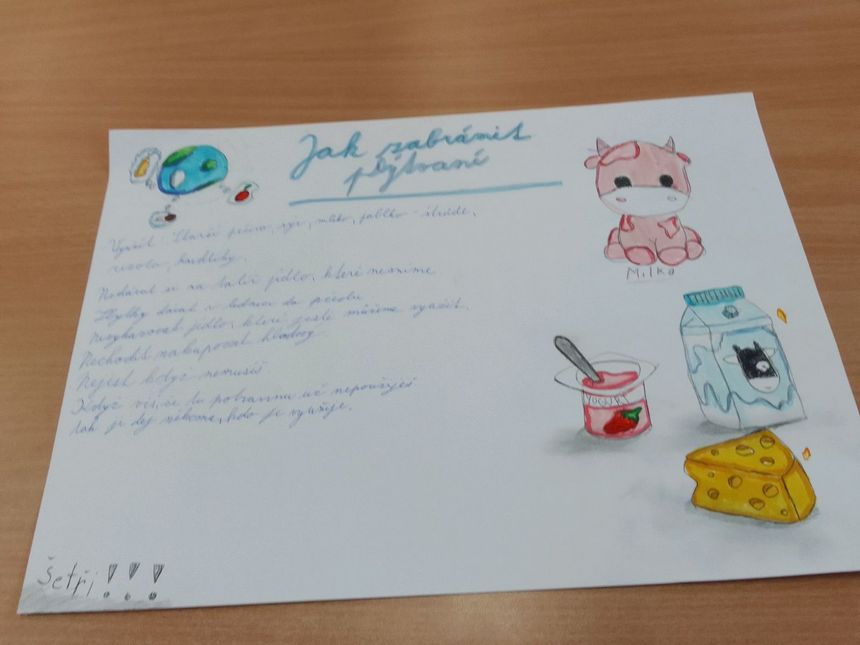 Jak zabránit
plýtvaní
Využít: Starší pečivo, sýr, mléko, jablko - štrúdl,
rizoto, knedlíky.
Nedávat si na talíř jídlo, které nesníme
Zbytky dávat v lednici do
Nevyhazovat jídlo, které ještě můžeme využít.
Nechodit nakupovat hladový
Nejest když nemusíš
Když víš, že tu potravinu už nepoužiješ
tak ji dej někomu, kdo ji využije.
Milka
YOGURT
Šetři!!!